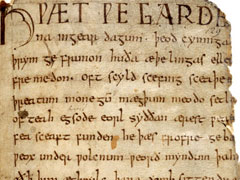 HǷÆT ǷE GARDE
na ingear dagum. þeod cyninga
þrym ge frunon huða æþelingas elle
fremedon. oft scyld scefing sceaþe
þreatum monegū mægþum meodo setl
of teah egsode eorl syððan ærest
fea sceaft funden he þæs frofre geb
ƿeox under ƿolcnum ƿeorð myndum þah
him æghƿylc þara ymb sittend